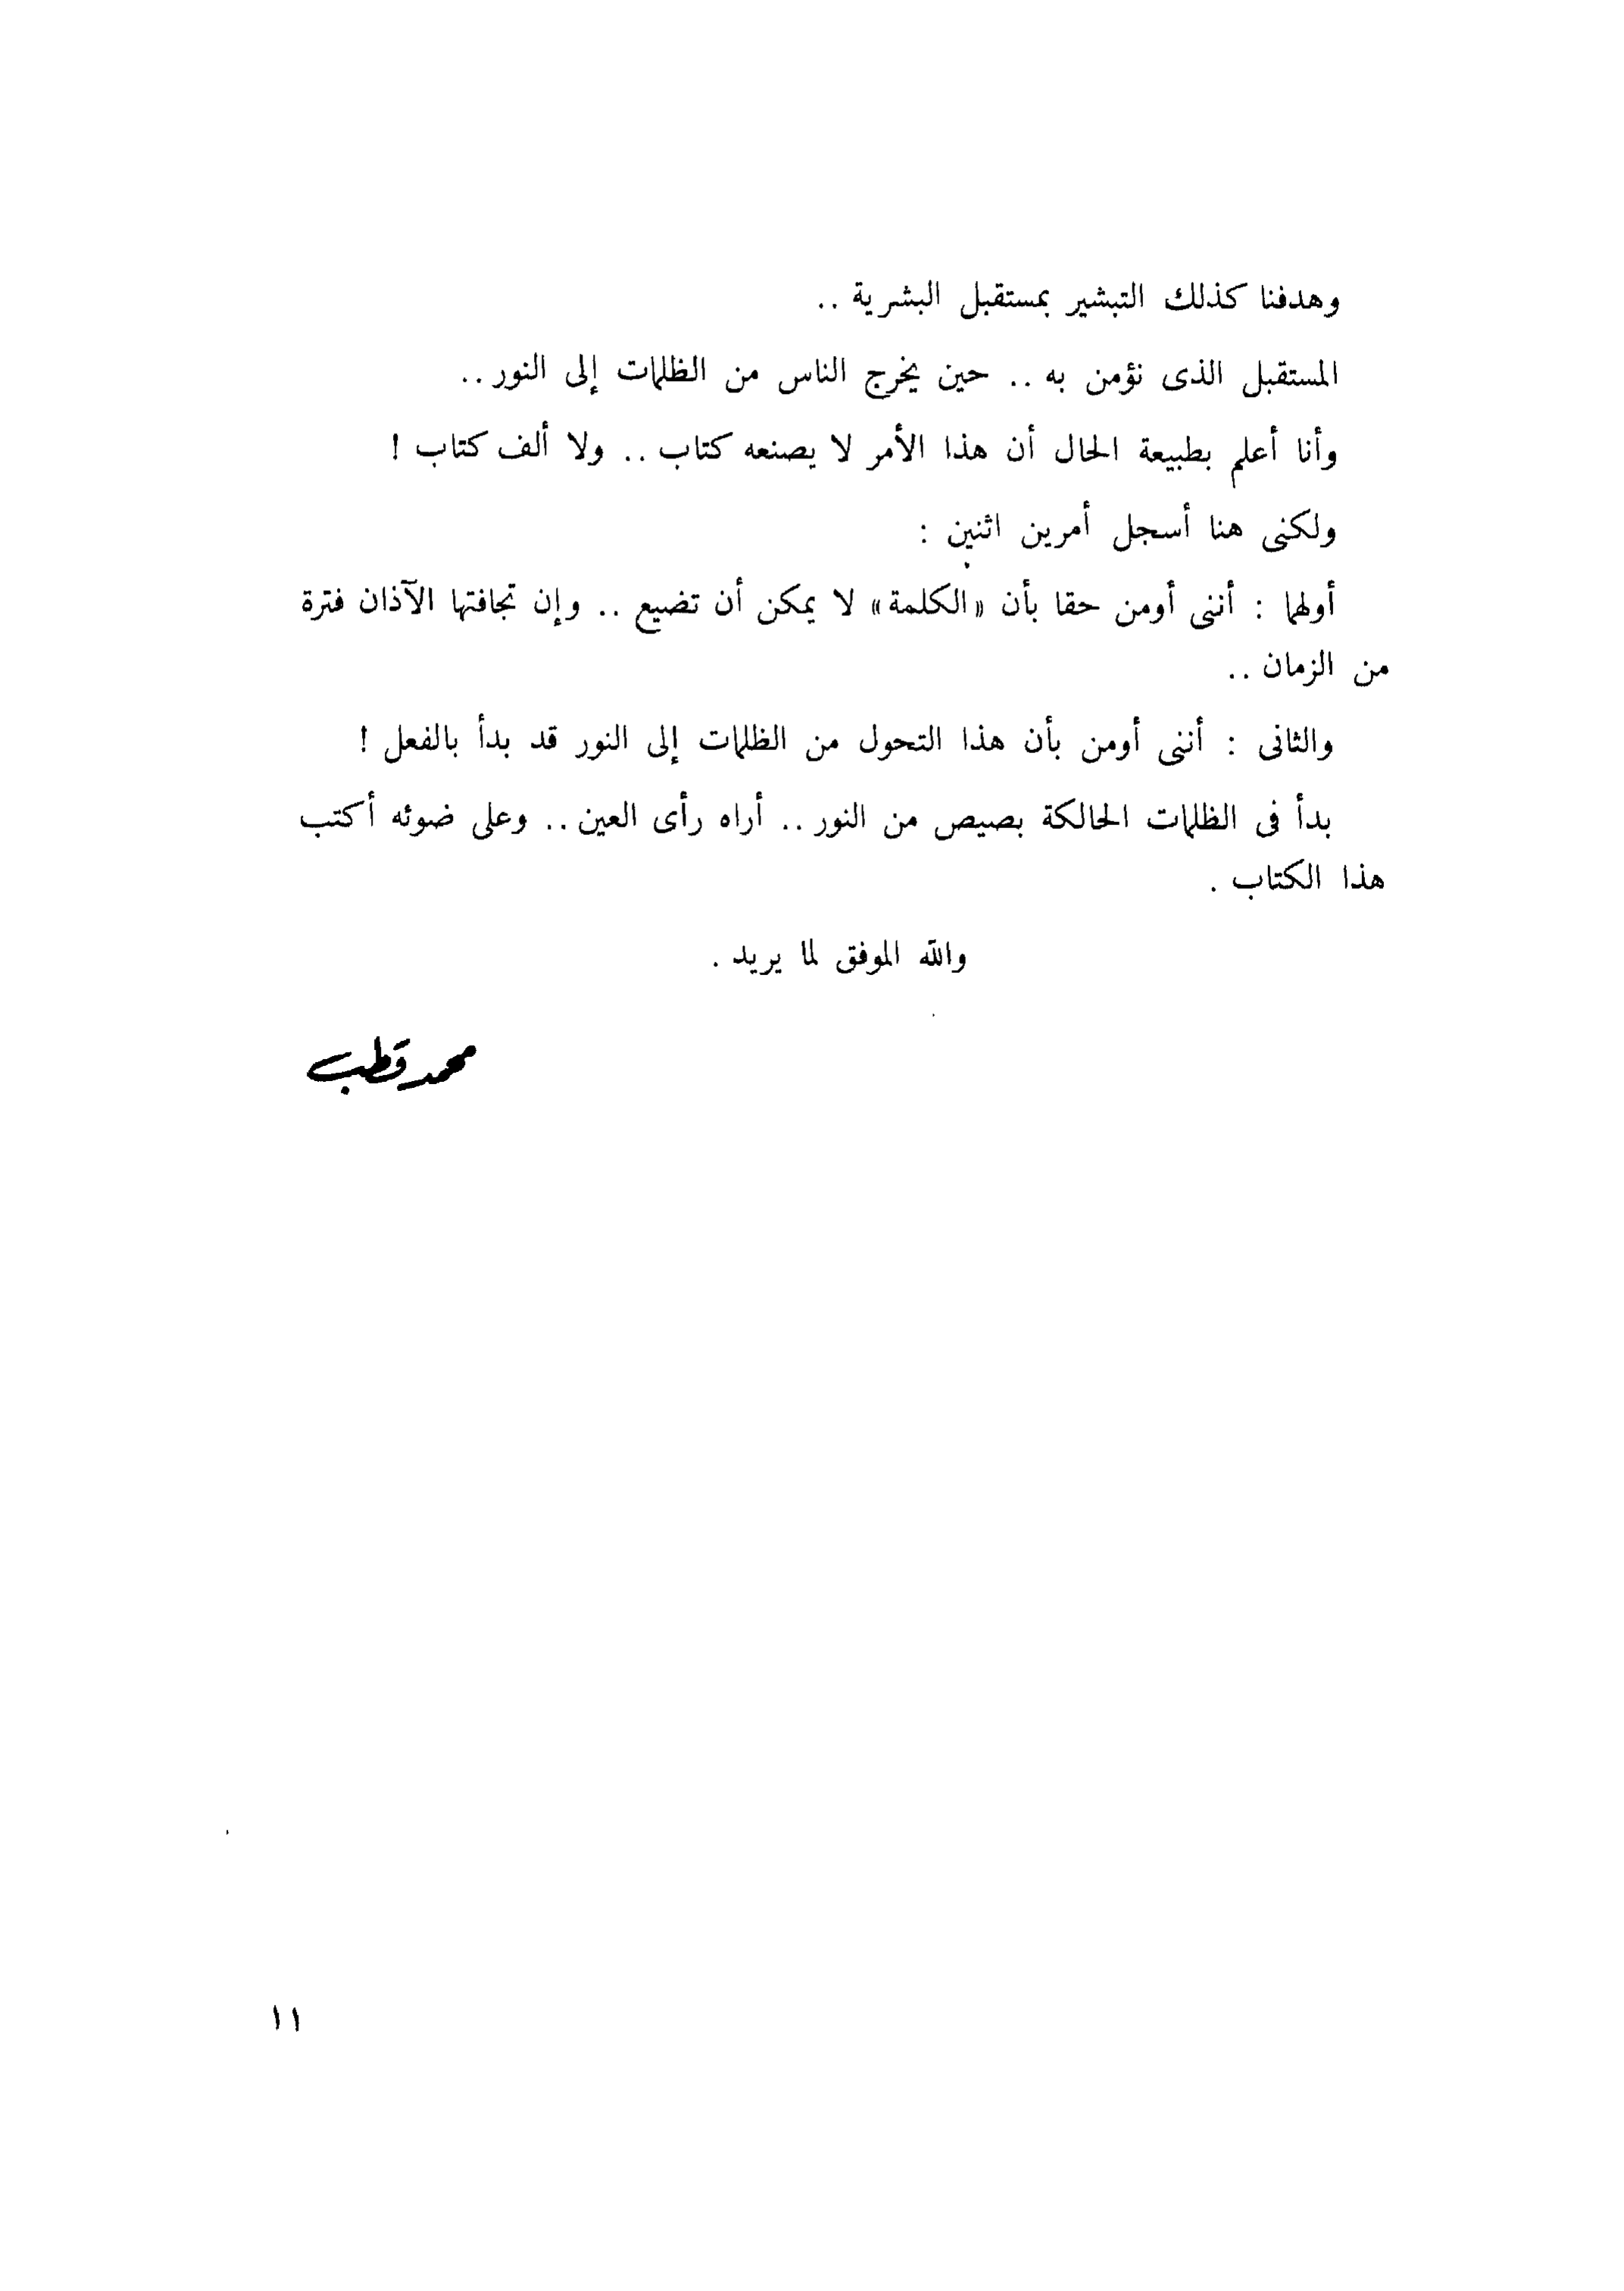 وهدفنا كذلك التبشير بمستقبل البشرية ..
المستقبل الذى نؤمن به .. حين يخرج الناس من الظلمات إلى النور ..
وأنا أعلم بطبيعة الحال أن هذا الأمر لا يصنعه كتاب .. ولا ألف كتاب !
ولكنى هنا أسجل أمرين اثنين :
أولهما : أننى أومن حقا بأن «الكلمة» لا يمكن أن تضيع .. وإن تجافتها الآذان فترة
من الزمان ..
والثانى : أننى أومن بأن هذا التحول من الظلمات إلى النور قد بدأ بالفعل !
بدأ فى الظلمات الحالكة بصيص من النور .. أراه رأى العين .. وعلى ضوئه أكتب
هذا الكتاب .
والله الموفق لما يريد .
محمد قطب
١١